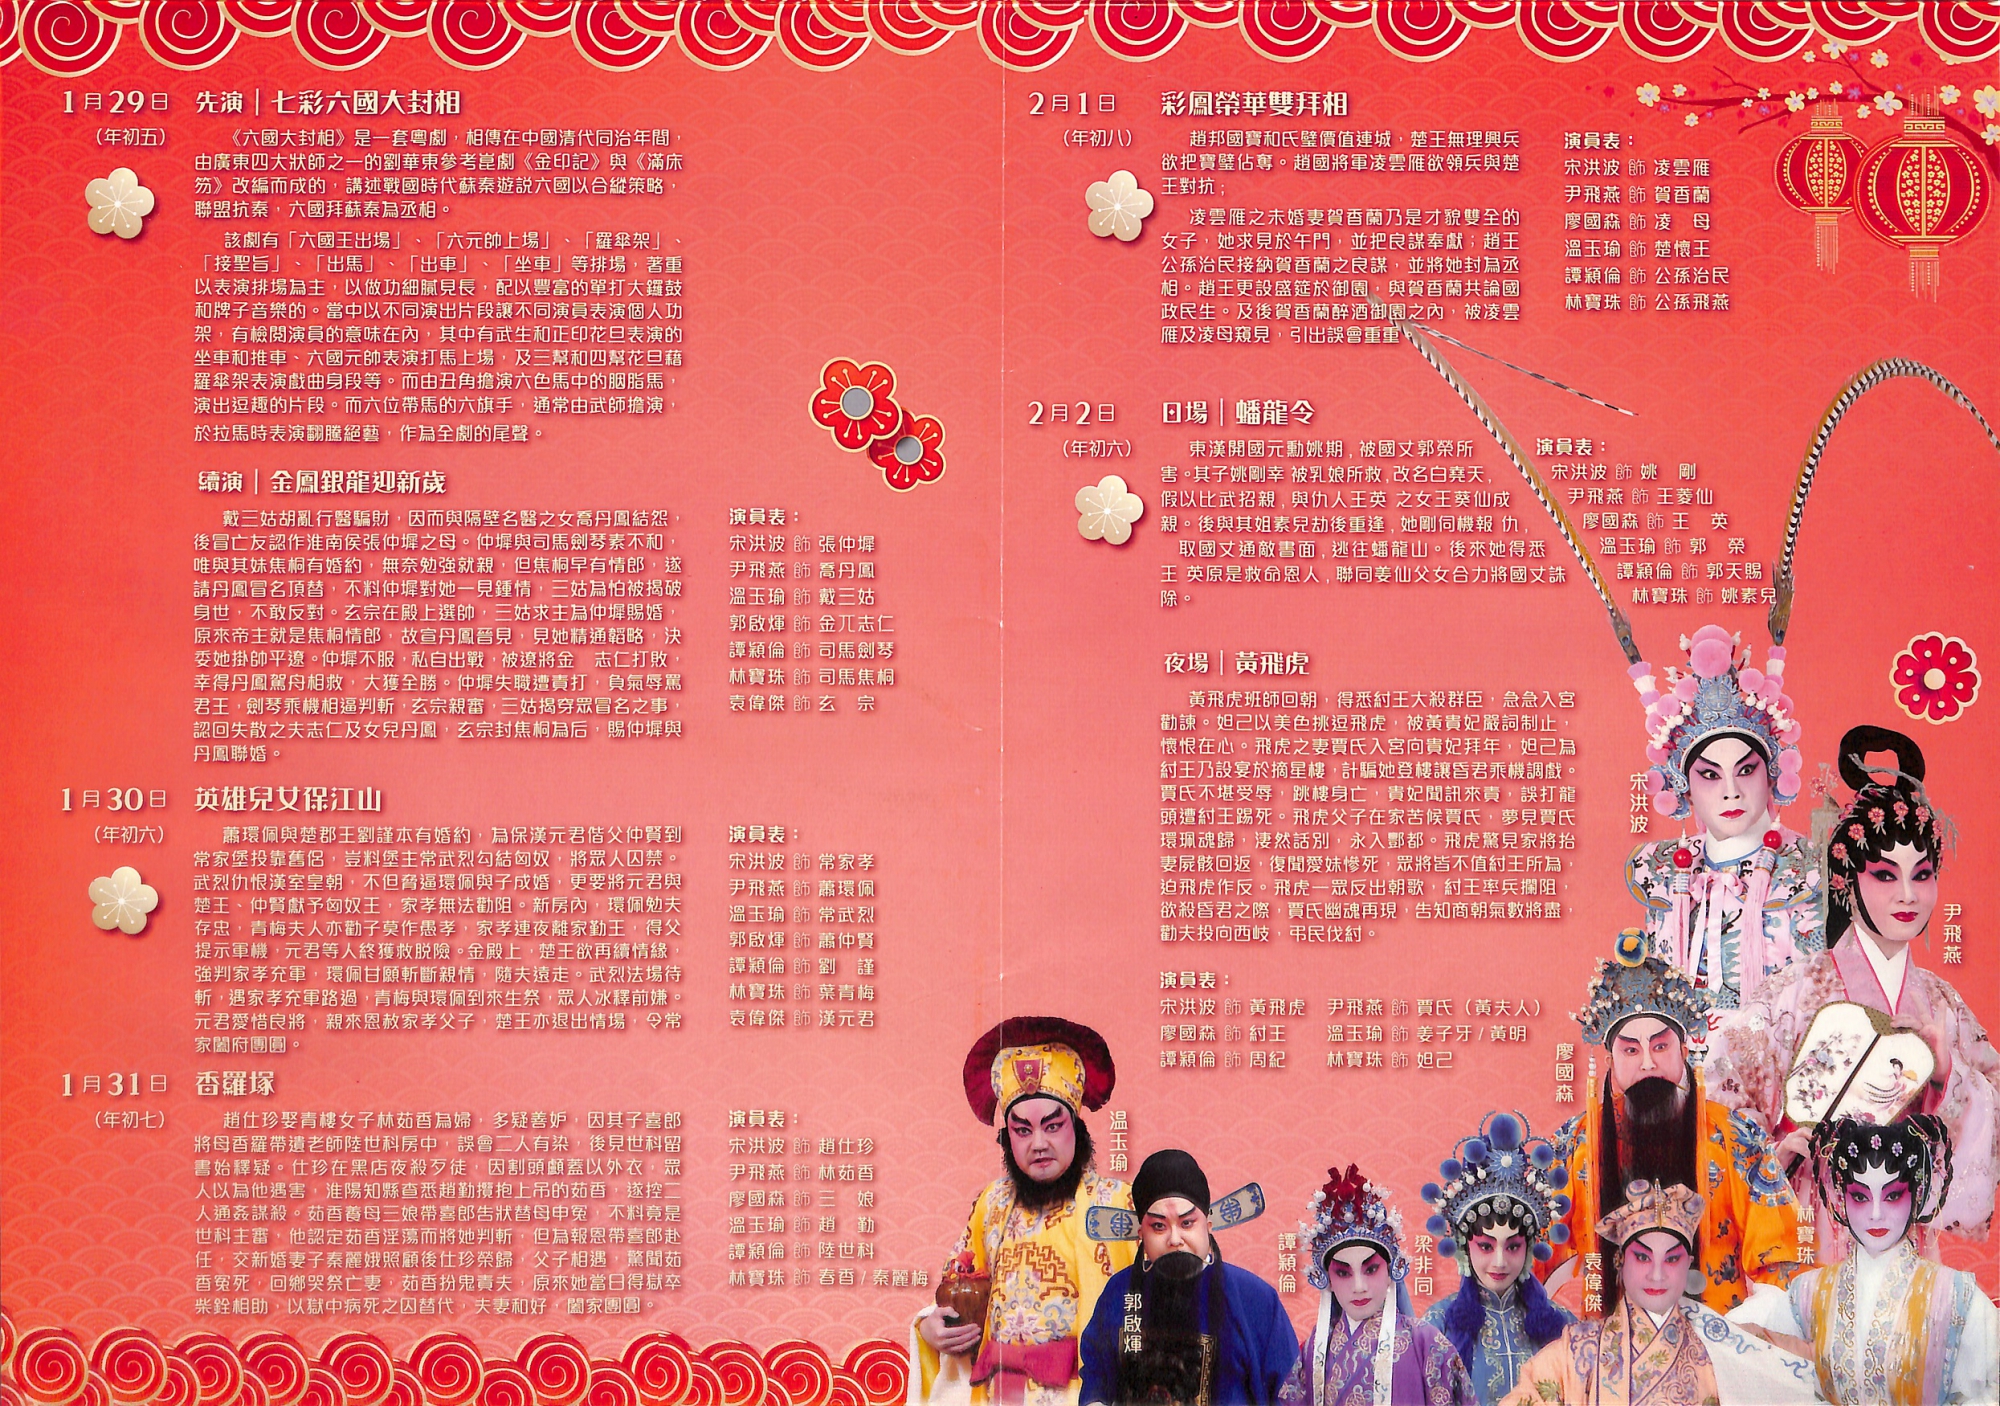 1月29日
(年初五)
先演｜七彩六國大封相
《六國大封相》是一套粵劇，相傳在中國清代同治年間，
由廣東四大狀師之一的劉華東參考崑劇《金印記》與《滿床
笏》改編而成的，講述戰國時代蘇秦遊說六國以合縱策略，
聯盟抗秦，六國拜蘇秦為丞相。
該劇有「六國王出場」、「六元帥上場」、「羅傘架」、
「接聖旨」、「出馬」、「出車」、「坐車」等排場，著重
以表演排場為主，以做功細膩見長，配以豐富的單打大鑼鼓
和牌子音樂的。當中以不同演出片段讓不同演員表演個人功
架，有檢閱演員的意味在內，其中有武生和正印花旦表演的
坐車和推車、六國元帥表演打馬上場，及三幫和四幫花旦藉
羅傘架表演戲曲身段等。而由丑角擔演六色馬中的胭脂馬，
演出逗趣的片段。而六位帶馬的六旗手，通常由武師擔演，
於拉馬時表演翻騰絕藝，作為全劇的尾聲。
續演｜金鳳銀龍迎新歲
戴三姑胡亂行醫騙財，因而與隔壁名醫之女喬丹鳳結怨，
後冒亡友認作淮南侯張仲墀之母。仲墀與司馬劍琴素不和，
唯與其妹焦桐有婚約，無奈勉強就親，但焦桐早有情郎，遂
請丹鳳冒名頂替，不料仲墀對她一見鍾情，三姑為怕被揭破
身世，不敢反對。玄宗在殿上選帥，三姑求主為仲墀賜婚，
原來帝主就是焦桐情郎，故宣丹鳳晉見，見她精通韜略，決
委她掛帥平遼。仲墀不服，私自出戰，被遼將金　志仁打敗，
幸得丹鳳駕舟相救，大獲全勝。仲墀失職遭責打，負氣辱罵
君王，劍琴乘機相逼判斬，玄宗親審，三姑揭穿眾冒名之事，
認回失散之夫志仁及女兒丹鳳，玄宗封焦桐為后，賜仲墀與
丹鳳聯婚。
演員表：
宋洪波 飾 張仲墀
尹飛燕 飾 喬丹鳳
溫玉瑜 飾 戴三姑
郭啟煇 飾 金兀志仁
譚穎倫 飾 司馬劍琴
林寶珠 飾 司馬焦桐
袁偉傑 飾 玄　宗
1月30日
(年初六)
英雄兒女保江山
蕭環佩與楚郡王劉謹本有婚約，為保漢元君偕父仲賢到
常家堡投靠舊侶，豈料堡主常武烈勾結匈奴，將眾人囚禁。
武烈仇恨漢室皇朝，不但脅逼環佩與子成婚，更要將元君與
楚王、仲賢獻予匈奴王，家孝無法勸阻。新房內，環佩勉夫
存忠，青梅夫人亦勸子莫作愚孝，家孝連夜離家勤王，得父
提示軍機，元君等人終獲救脫險。金殿上，楚王欲再續情緣，
強判家孝充軍，環佩甘願斬斷親情，隨夫遠走。武烈法場待
斬，遇家孝充軍路過，青梅與環佩到來生祭，眾人冰釋前嫌。
元君愛惜良將，親來恩赦家孝父子，楚王亦退出情場，令常
家闔府團圓。
演員表：
宋洪波 飾 常家孝
尹飛燕 飾 蕭環佩
溫玉瑜 飾 常武烈
郭啟煇 飾 蕭仲賢
譚穎倫 飾 劉　謹
林寶珠 飾 葉青梅
袁偉傑 飾 漢元君
1月31日
(年初七)
香羅塚
趙仕珍娶青樓女子林茹香為婦，多疑善妒，因其子喜郎
將母香羅帶遺老師陸世科房中，誤會二人有染，後見世科留
書始釋疑。仕珍在黑店夜殺歹徒，因割頭顱蓋以外衣，眾
人以為他遇害，淮陽知縣查悉趙勤攬抱上吊的茹香，遂控二
人通姦謀殺。茹香養母三娘帶喜郎告狀替母申冤，不料竟是
世科主審，他認定茹香淫蕩而將她判斬，但為報恩帶喜郎赴
任，交新婚妻子秦麗娥照顧後仕珍榮歸，父子相遇，驚聞茹
香冤死，回鄉哭祭亡妻，茹香扮鬼責夫，原來她當日得獄卒
柴銓相助，以獄中病死之囚替代，夫妻和好，闔家團圓。
演員表：
宋洪波 飾 趙仕珍
尹飛燕 飾 林茹香
廖國森 飾 三　娘
溫玉瑜 飾 趙　勤
譚穎倫 飾 陸世科
林寶珠 飾 春香/秦麗梅
2月1日
(年初八)
彩鳳榮華雙拜相
趙邦國寶和氏璧價值連城，楚王無理興兵
欲把寶璧佔奪。趙國將軍凌雲雁欲領兵與楚
王對抗；
凌雲雁之未婚妻賀香蘭乃是才貌雙全的
女子，她求見於午門，並把良謀奉獻；趙王
公孫治民接納賀香蘭之良謀，並將她封為丞
相。趙王更設盛筵於御園，與賀香蘭共論國
政民生。及後賀香蘭醉酒御園之內，被凌雲
雁及凌母窺見，引出誤會重重。
演員表：
宋洪波 飾 凌雲雁
尹飛燕 飾 賀香蘭
廖國森 飾 凌　母
溫玉瑜 飾 楚懷王
譚穎倫 飾 公孫治民
林寶珠 飾 公孫飛燕
2月2日
(年初六)
日場｜蟠龍令
東漢開國元勳姚期,被國丈郭榮所
害。其子姚剛幸 被乳娘所救,改名白堯天,
假以比武招親,與仇人王英 之女王葵仙成
親。後與其姐素兒劫後重逢,她剛伺機報 仇,
取國丈通敵書面,逃往蟠龍山。後來她得悉
王 英原是救命恩人,聯同姜仙父女合力將國丈誅
除。
演員表：
宋洪波 飾 姚　剛
尹飛燕 飾 王菱仙
廖國森 飾 王　英
溫玉瑜 飾 郭　榮
譚穎倫 飾 郭天賜
林寶珠 飾 姚素兒
夜場｜黃飛虎
黃飛虎班師回朝，得悉紂王大殺群臣，急急入宮
勸諫。妲己以美色挑逗飛虎，被黃貴妃嚴詞制止，
懷恨在心。飛虎之妻賈氏入宮向貴妃拜年，妲己為
紂王乃設宴於摘星樓，計騙她登樓讓昏君乘機調戲。
賈氏不堪受辱，跳樓身亡，貴妃聞訊來責，誤打龍
頭遭紂王踢死。飛虎父子在家苦候賈氏，夢見賈氏
環珮魂歸，淒然話別，永入酆都。飛虎驚見家將抬
妻屍骸回返，復聞愛妹慘死，眾將皆不值紂王所為，
迫飛虎作反。飛虎一眾反出朝歌，紂王率兵攔阻，
欲殺昏君之際，賈氏幽魂再現，告知商朝氣數將盡，
勸夫投向西岐，弔民伐紂。
演員表：
宋洪波 飾 黃飛虎　尹飛燕 飾 賈氏（黃夫人）
廖國森 飾 紂王　溫玉瑜 飾 姜子牙/黃明
譚穎倫 飾 周紀　林寶珠 飾 妲己
宋洪波
尹飛燕
廖國森
溫玉瑜
林寶珠
譚穎倫
梁非同
袁偉傑
郭啟煇